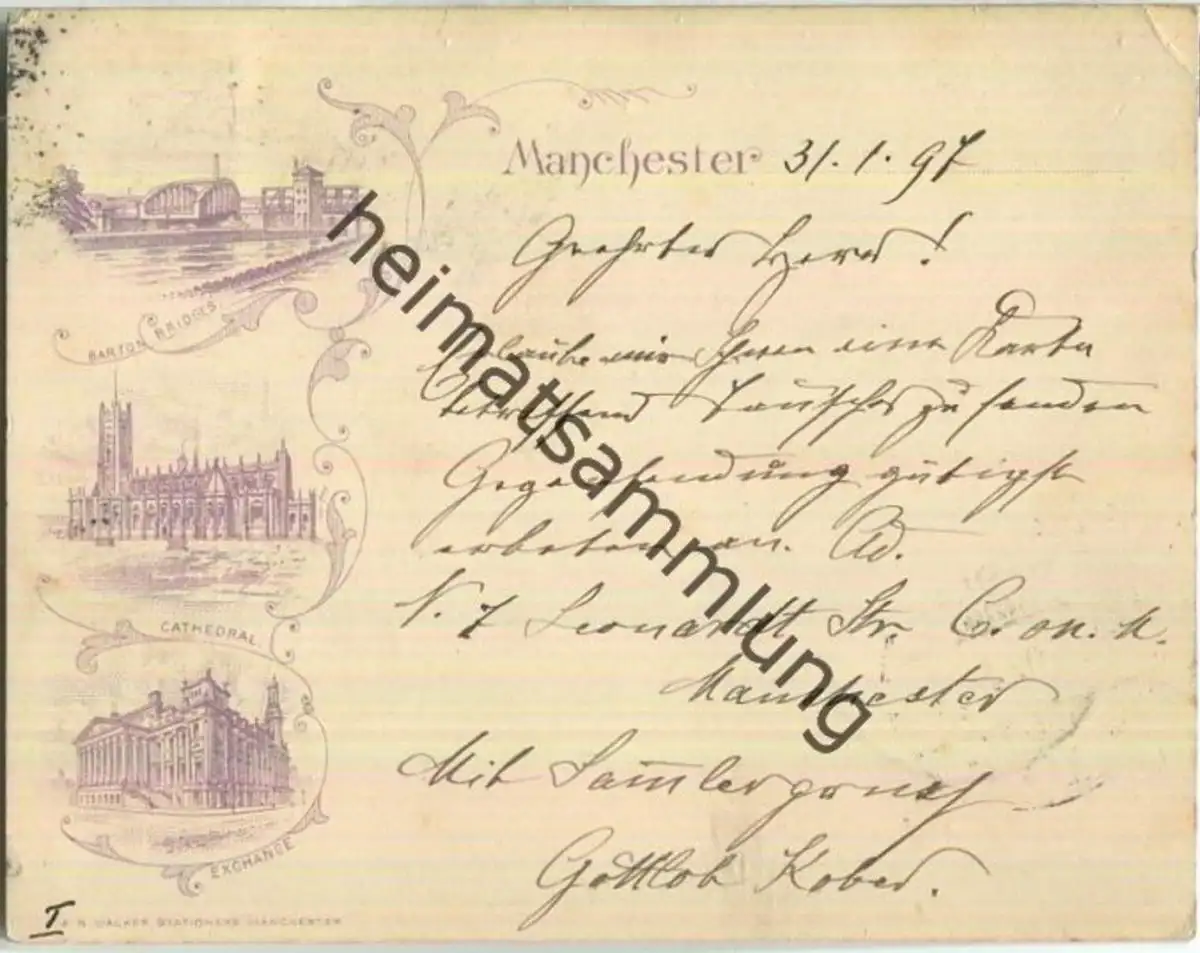 Manchester 31.1.97
Geehrter Herr!
Erlaube mir Ihnen eine Karte
betreffend Tausches zu senden
Gegensendung gütigst
erbeten an. Ad.
N. 7 Leonardt Str. C. on. M.
Manchester
Mit Sam̅lergruss
Gottlob Kober.
BARTON BRIDGES
CATHEDRAL
EXCHANGE
I
N. WALKER STATIONERS MANCHESTER
heimatsammlung